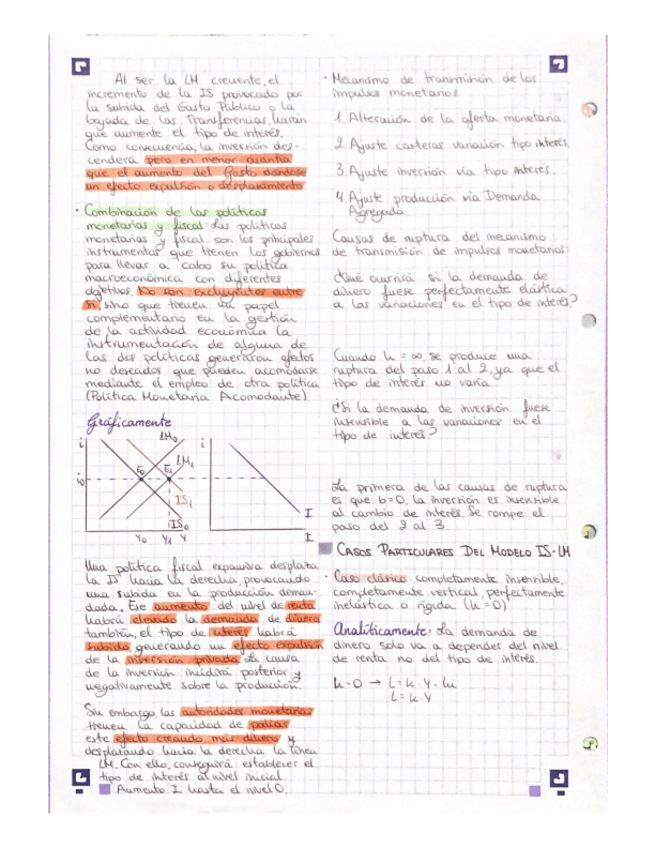 Al ser la LM creciente, el
incremento de la IS provocado por
la subida del Gasto Público o la
bajada de las Transferencias, harán
que aumente el tipo de interés.
Como consecuencia, la inversión des-
cenderá pero en menor cuantía
que el aumento del Gasto dándose
un efecto expulsión o desplazamiento.
· Combinación de las políticas
monetarias y fiscal: Las políticas
monetarias y fiscal son los principales
instrumentos que tienen los gobiernos
para llevar a cabo su política
macroeconómica con diferentes
objetivos. No son excluyentes entre
sí sino que tienen un papel
complementario en la gestión
de la actividad económica la
instrumentación de alguna de
las dos políticas generaron efectos
no deseados que pueden acomodarse
mediante el empleo de otra política
(Política Monetaria Acomodante).
Gráficamente
i LM0 i
LM1
i0 E0 E1
IS1
I
IS0
Y0 Y1 Y I
Una política fiscal expansiva desplaza
la IS hacia la derecha, provocando
una subida en la producción deman-
dada. Ese aumento del nivel de renta
habrá elevado la demanda de dinero
también, el tipo de interés habrá
subido generando un efecto expulsión
de la inversión privada. La causa
de la inversión incidirá posterior y
negativamente sobre la producción.
Sin embargo, las autoridades monetarias
tienen la capacidad de paliar
este efecto creando más dinero y
desplazando hacia la derecha la línea
LM. Con ello, conseguirá establecer el
tipo de interés al nivel inicial.
Aumento I hasta el nivel 0.
· Mecanismo de transmisión de los
impulsos monetarios.
1. Alteración de la oferta monetaria.
2. Ajuste carteras variación tipo interés.
3. Ajuste inversión vía tipo interés.
4. Ajuste producción vía Demanda
Agregada.
Causas de ruptura del mecanismo
de transmisión de impulsos monetarios:
¿Qué ocurrirá si la demanda de
dinero fuese perfectamente elástica
a las variaciones en el tipo de interés?
Cuando h = ∞, se produce una
ruptura del paso 1 al 2, ya que el
tipo de interés no varía.
¿Si la demanda de inversión fuese
insensible a las variaciones en el
tipo de interés?
La primera de las causas de ruptura
es que b=0, la inversión es insensible
al cambio de interés. Se rompe el
paso del 2 al 3.
CASOS PARTICULARES DEL MODELO IS-LM
· Caso clásico: completamente insensible,
completamente vertical, perfectamente
inelástica o rígida (h=0)
Analíticamente: La demanda de
dinero solo va a depender del nivel
de renta no del tipo de interés.
h=0 → L=k·Y-hi
L=k·Y